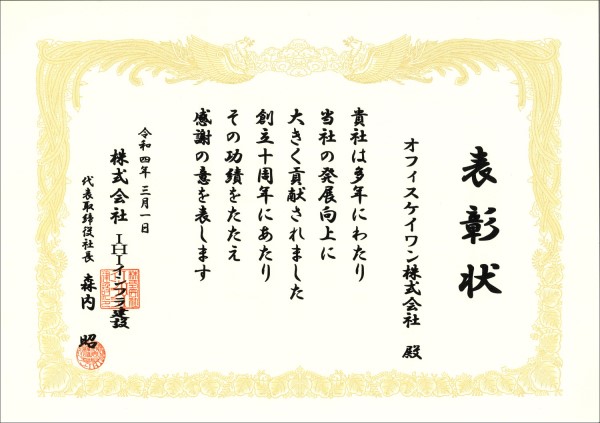 表彰状
オフィスケイワン株式会社 殿
貴社は多年にわたり
当社の発展向上に
大きく貢献されました
創立十周年にあたり
その功績をたたえ
感謝の意を表します
令和四年三月一日
株式会社IHIインフラ建設
代表取締役社長 森内 昭